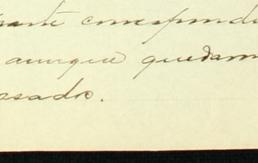 correspond
aunque quedam
asado.